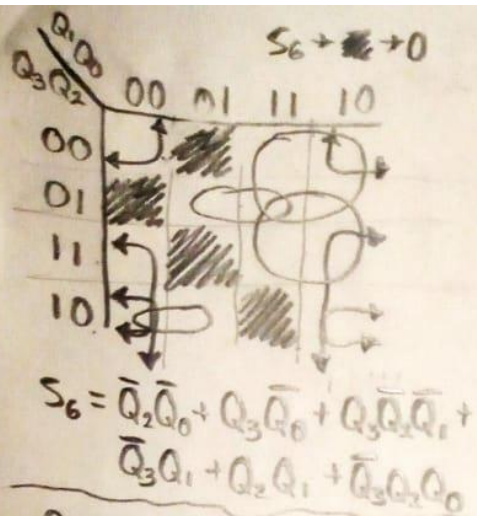 Q₁Q₀
S₆ → → 0
Q₃Q₂
00 01 11 10
00
01
11
10
S₆ = Q̅₂Q̅₀ + Q₃Q̅₀ + Q₃Q̅₂Q̅₁ +
Q̅₃Q₁ + Q₂Q₁ + Q̅₃Q₂Q₀